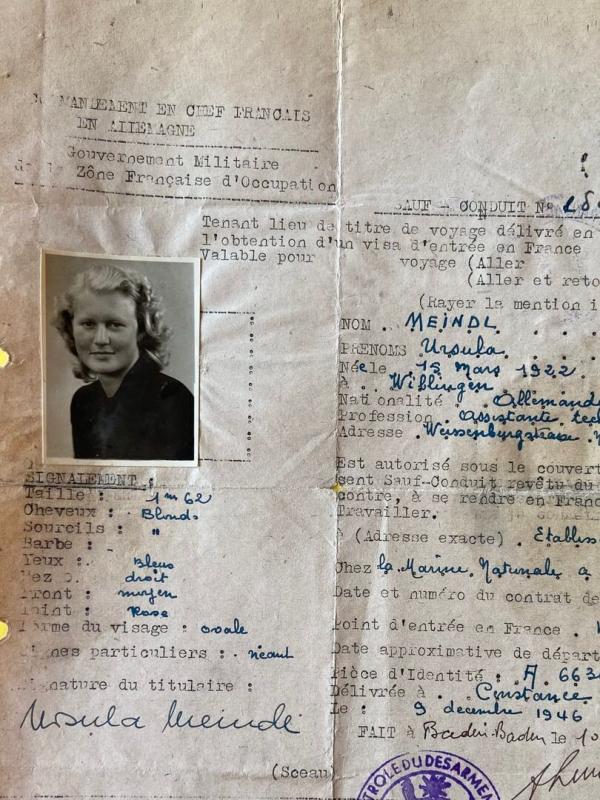 MANDEMENT EN CHEF FRANCAIS
EN ALLEMAGNE
Gouvernement Militaire
Zône Française d'Occupation
SAUF - CONDUIT Nº
Tenant lieu de titre de voyage délivré en
l'obtention d'un visa d'entrée en France
Valable pour voyage (Aller
(Aller et reto
(Rayer la mention i
NOM . MEINDL
PRENOMS Ursula.
Née le 15 Mars 1922.
à . Wiblingen
Nationalité . Allemande
Profession . assistante tech
Adresse . Weissenburgstrasse
Est autorisé sous le couvert
sent Sauf-Conduit revêtu du
contre, à se rendre en Franc
Travailler.
à (Adresse exacte) . Etabliss
Chez la Marine Nationale a
Date et numéro du contrat de
Point d'entrée en France .
Date approximative de départ
Pièce d'Identité : A. 663
Délivrée à . Constance
Le : 9 decembre 1946
FAIT à Baden-Baden le 10
SIGNALEMENT :
Taille : 1m 62
Cheveux : Blonds
Sourcils : "
Barbe :
Yeux : . Bleus
Nez . droit
Front : moyen
Teint : Rose
Forme du visage : ovale
Signes particuliers : . néant
Signature du titulaire :
Ursula Meindl
(Sceau
TROLE DU DESARMEM